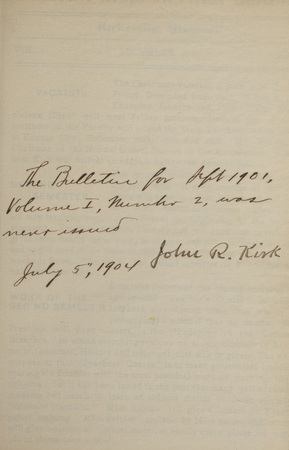 The Bulletin for Sept 1901,
Volume I, Number 2, was
never issued
John R. Kirk
July 5", 1904